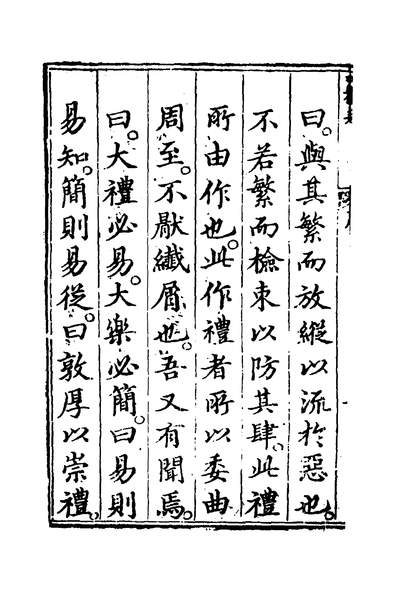 曰。與其繁而放縱以流於惡也。
不若繁而檢束以防其肆。此禮
所由作也。此作禮者所以委曲
周至。不厭纖屑也。吾又有聞焉。
曰。大禮必易。大樂必簡。曰易則
易知。簡則易從。曰敦厚以崇禮。